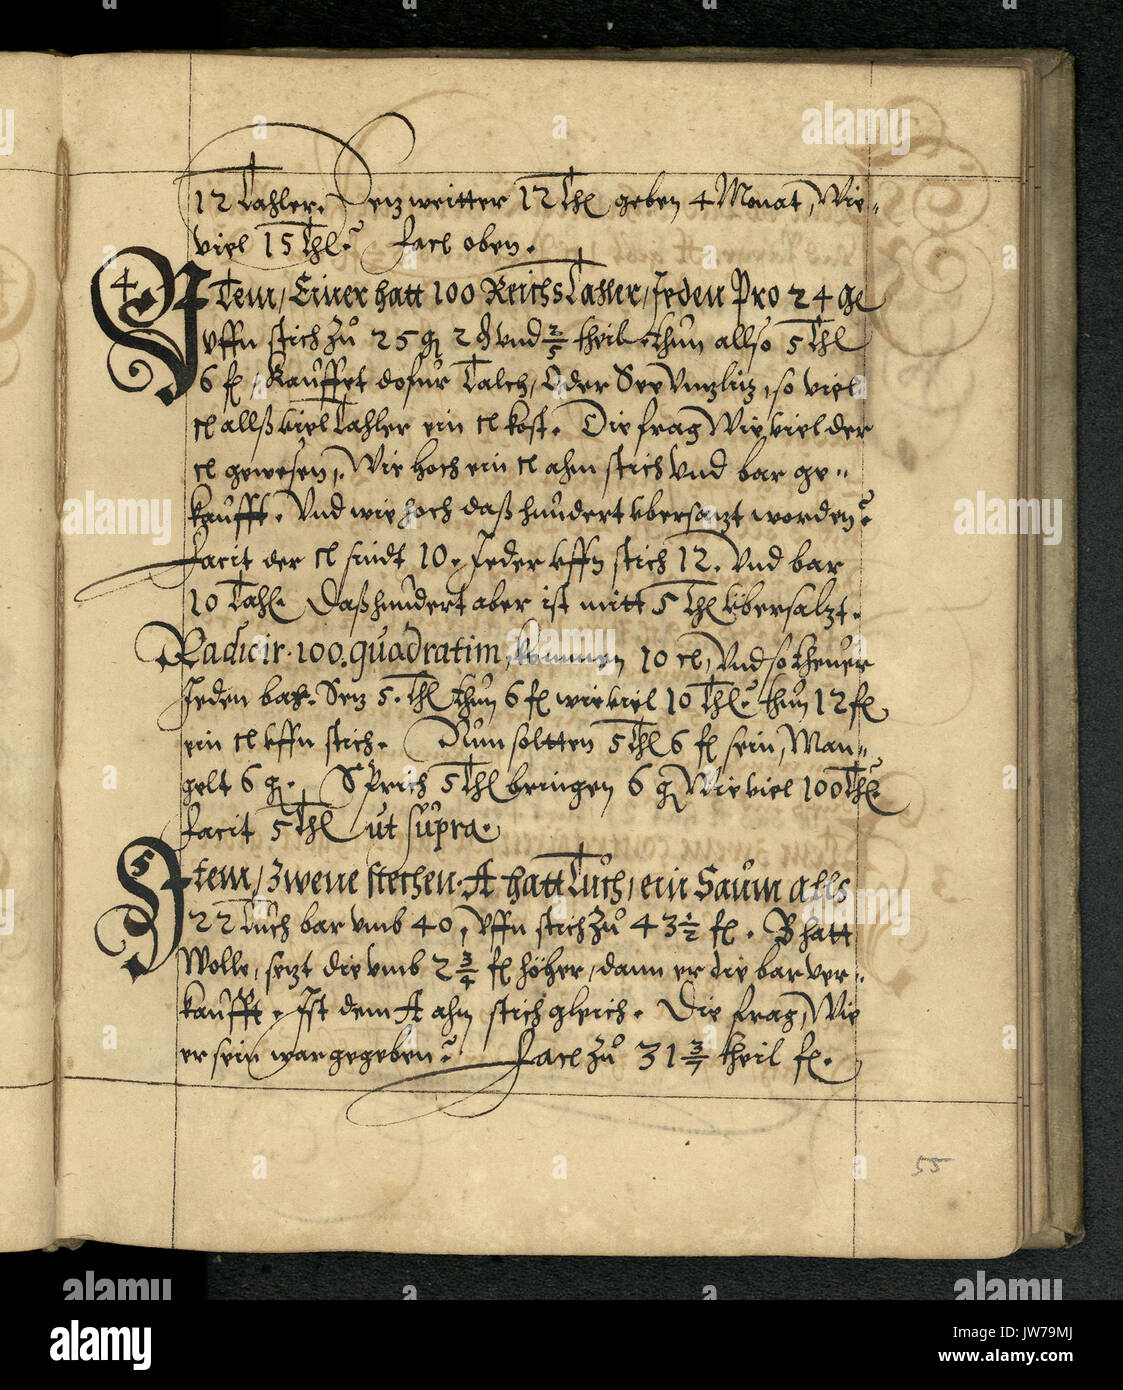 12 Tahler. Setz weitter 12 Thl geben 4 Monat, Wie„
viel 15 Thl? facl oben.
4
Item, Einer hatt 100 Reichs Tahler, Jeden Pro 24 ge
Uffn stich zu 25 g 2 d und 2/5 theil. thun allso 5 Thl
6 fl, Kauffet dofur Talch, Oder See Untzlitz, so viel
cl allß viel Tahler ein cl kost. Die frag Wie viel der
cl gewesen, Wie hoch ein cl ahm stich Und bar ge„
kaufft. Und wie hoch daß hundert ubersatzt worden?
Facit der cl sindt 10. Jeder uffn stich 12. Und bar
10 Tahl. Daß hundert aber ist mitt 5 Thl Übersatzt.
Radicir. 100. quadratim, kommen 10 cl, Und so theuer
Jeden bar. Setz 5. Thl thun 6 fl wie viel 10 Thl? thun 12 fl
ein cl uffn stich. Nun soltten 5 Thl 6 fl sein, Man„
gelt 6 g. Sprich 5 Thl bringen 6 g Wie viel 100 Thl?
facit 5 Thl ut supra.
5
Item, Zwene stechen. A hatt Tuch, ein Saum allß
22 Tuch bar umb 40, Uffn stich zu 43 1/2 fl. B hatt
Wolle, setzt die umb 2 3/4 fl höher, dann er die bar ver„
kaufft. Ist dem A ahm stich gleich. Die frag, Wie
er sein war gegeben? Facl zu 31 3/7 theil fl.
55
alamy
Image ID: JW79MJ
www.alamy.com